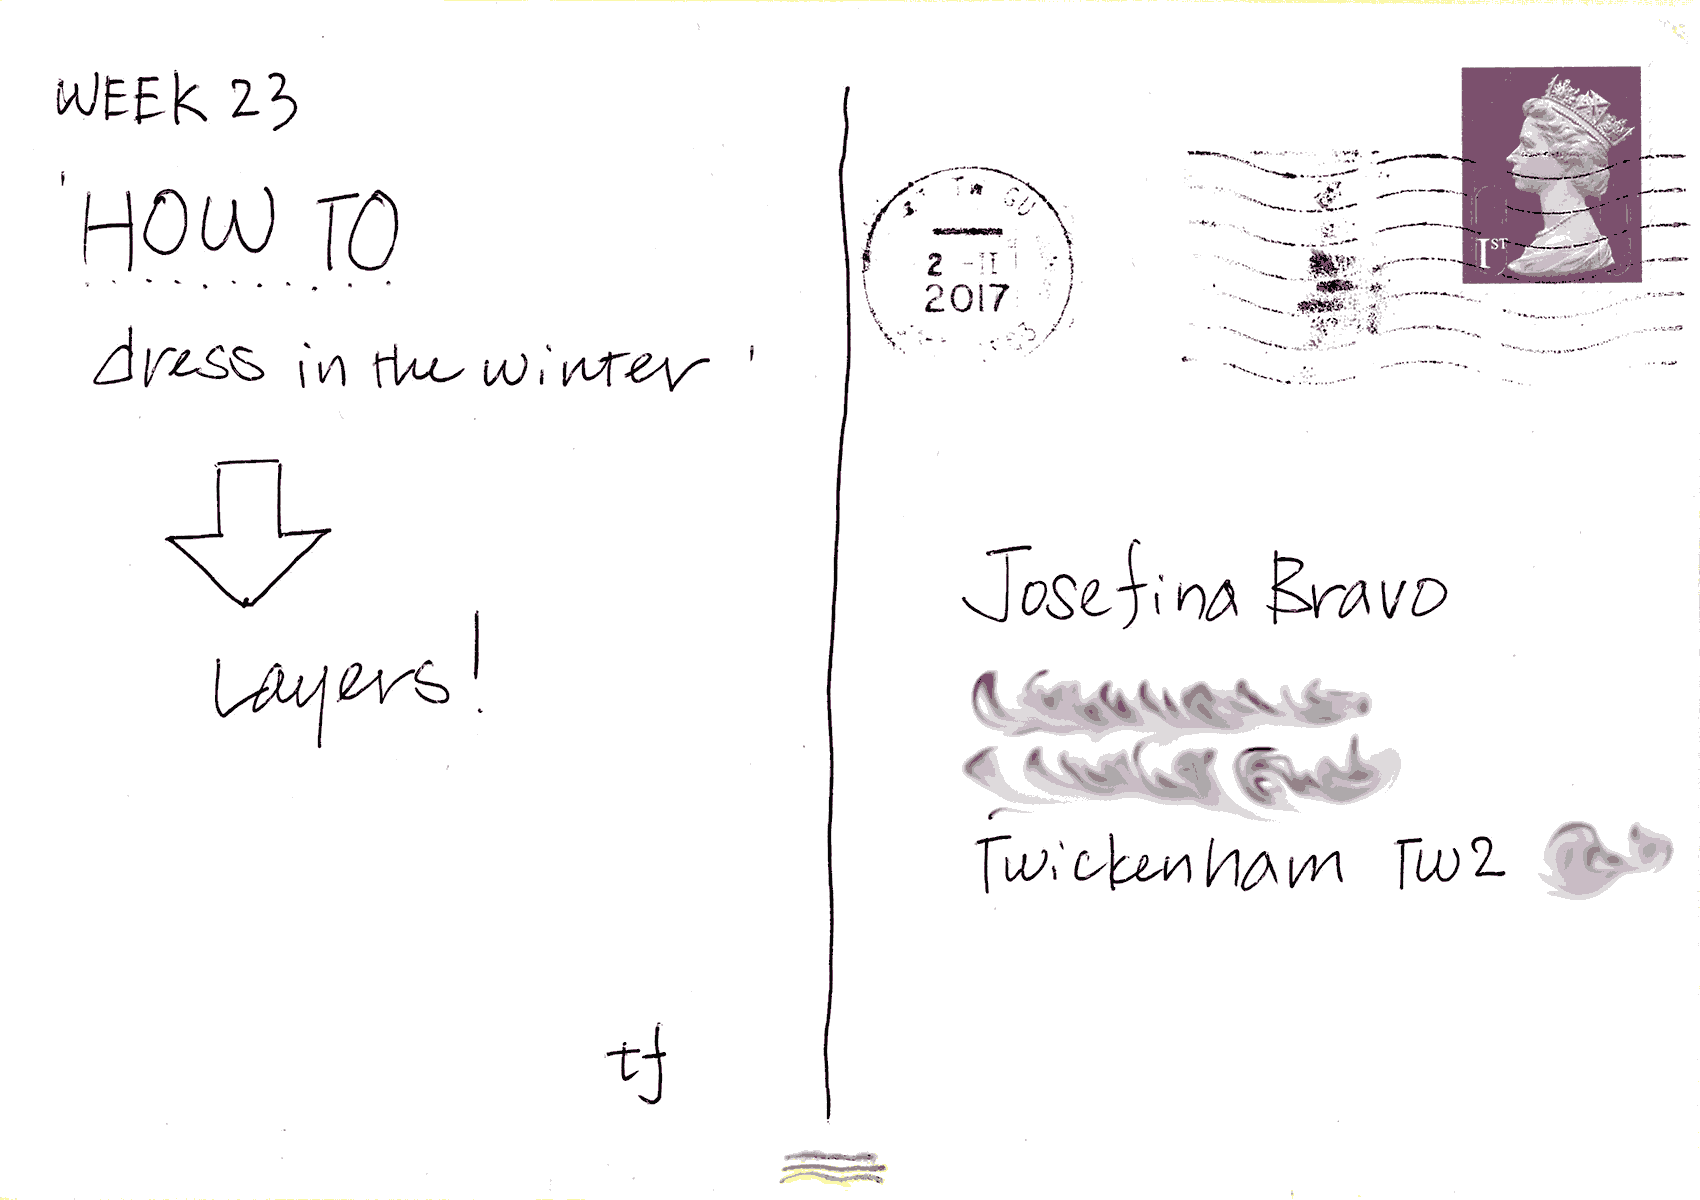 WEEK 23
'HOW TO
dress in the winter'
Layers!
tf
GU
2 -II
2017
1ST
Josefina Bravo
Twickenham TW2